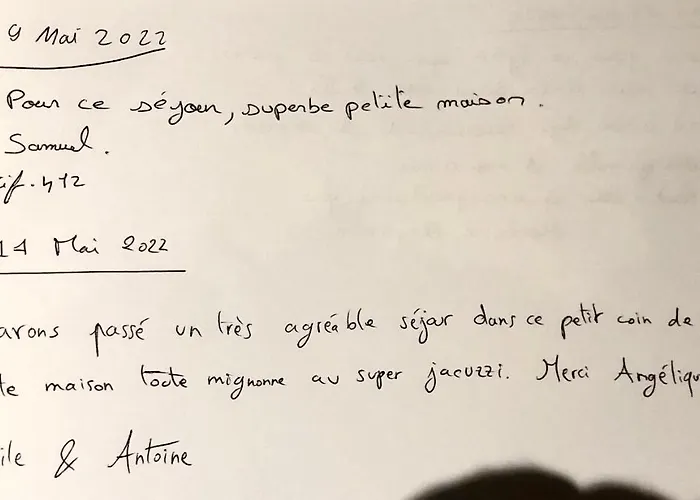 9 Mai 2022
Pour ce séjour, superbe petite maison.
Samuel.
if.412
14 Mai 2022
avons passé un très agréable séjour dans ce petit coin de
te maison toute mignonne au super jacuzzi. Merci Angéliqu
ile & Antoine